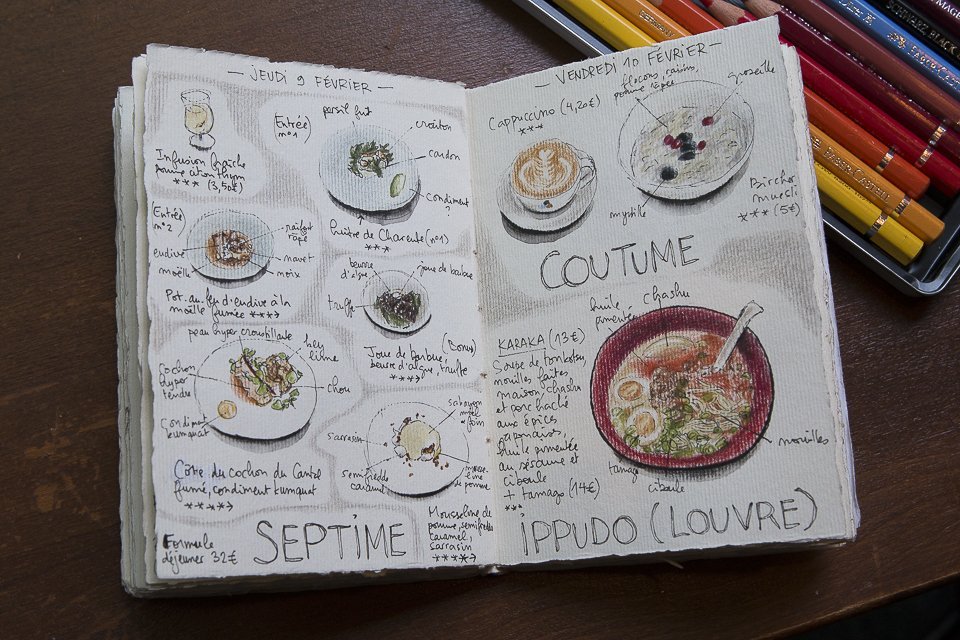 — JEUDI 9 FÉVRIER —
Infusion fraîche
pomme citron thym
*** (3,50€)
Entrée
n°1
persil frit
croûton
cardon
condiment
?
Huître de Charente (n°1)
***
Entrée
n°2
raifort
râpé
endive
navet
moëlle
noix
Pot-au-feu d'endive à la
moëlle fumée ***→
beurre
d'algue
joue de barbue
truffe
(Bonus)
Joue de barbue,
beurre d'algue, truffe
***→
peau hyper croustillante
Cochon
hyper
tendre
chou
Condiment
kumquat
Côte de cochon du Cantal
fumé, condiment kumquat
****→
sabayon
miel
foin
sarrasin
semifreddo
caramel
mousse-
line de
pomme
Mousseline de
pomme, semifreddo
caramel,
sarrasin
****→
SEPTIME
Formule
déjeuner 32€
— VENDREDI 10 FÉVRIER —
Cappuccino (4,20€)
***
flocons, raisins,
pomme râpée
groseille
myrtille
Bircher
muesli
*** (5€)
COUTUME
huile
pimentée
chashu
KARAKA (13€)
Soupe de tonkotsu,
nouilles faites
maison, chashu
et porc haché
aux épices
japonaises,
huile pimentée
au sésame et
ciboule
+ tamago (14€)
***
nouilles
tamago
ciboule
IPPUDO (LOUVRE)